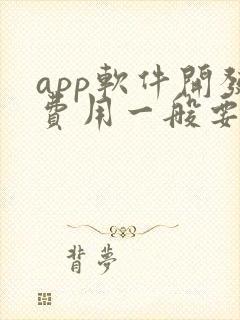 app軟件開發
費用一般要
背夢